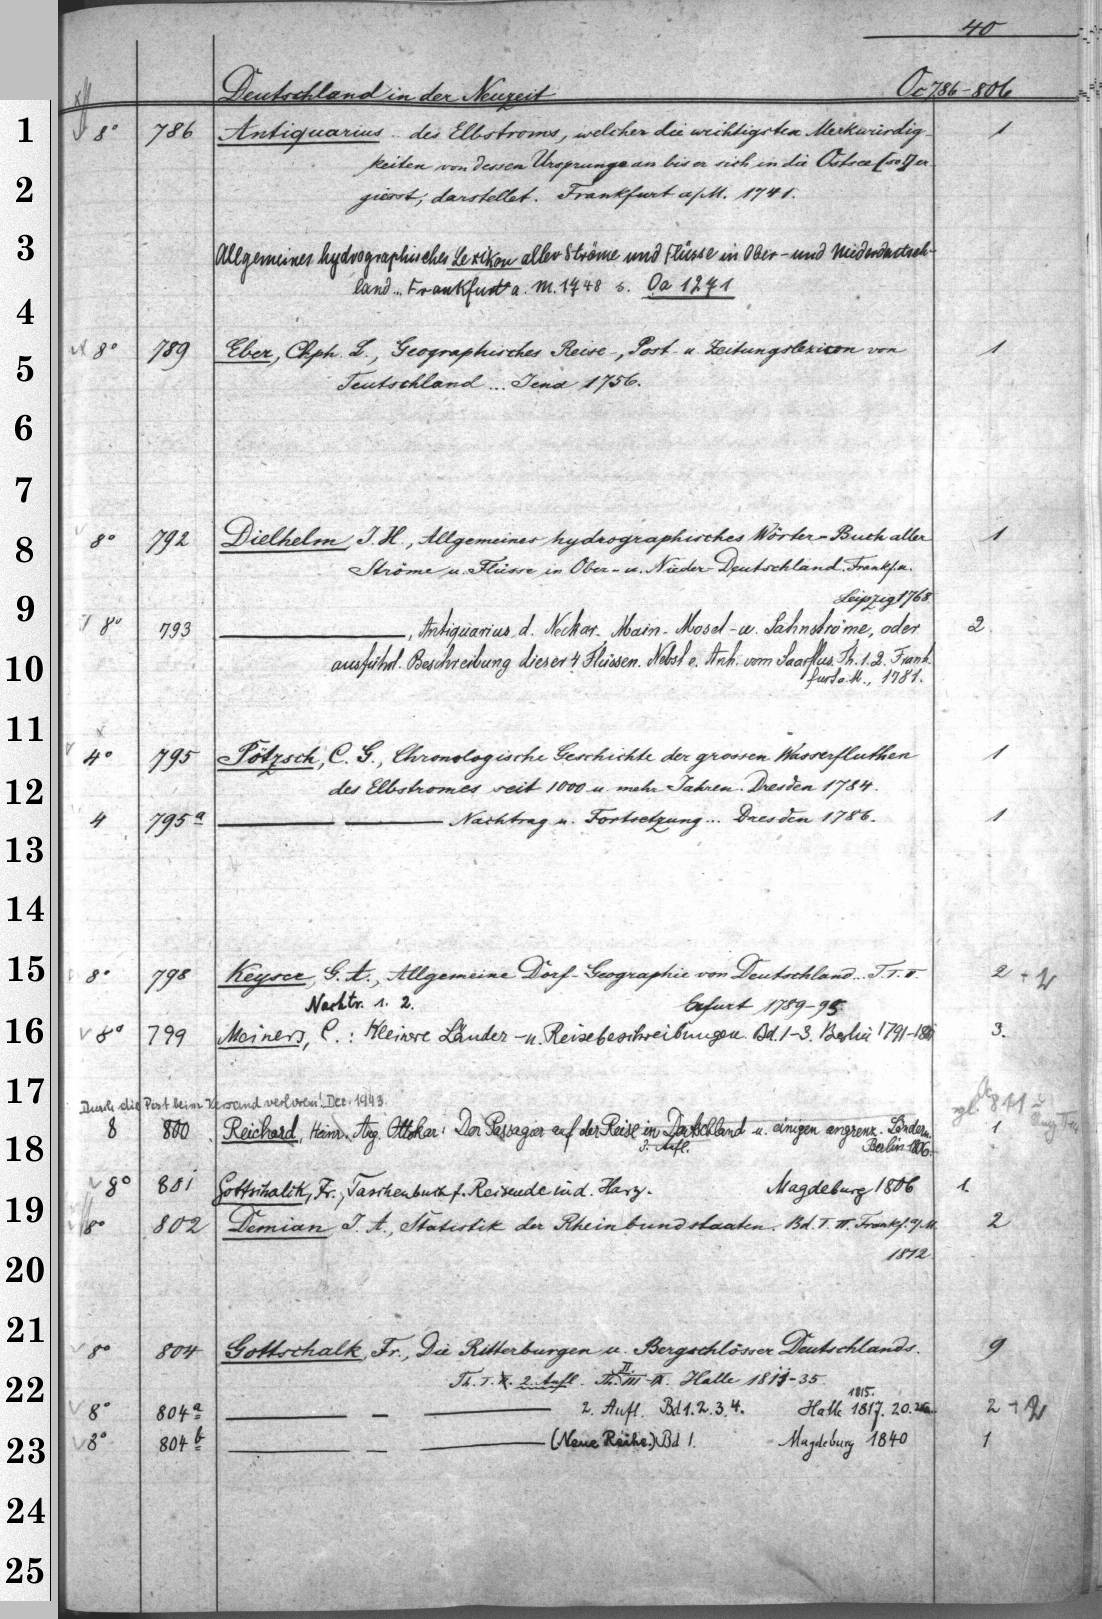 40
Deutschland in der Neuzeit Oc 786-806
1 8° 786 Antiquarius des Elbstroms, welcher die wichtigsten Merkwürdig- 1
keiten von dessen Ursprunge an bis er sich in die Ostsee [so!] er
2 giesst, darstellet. Frankfurt a/M. 1741.
3 Allgemeines hydrographisches Lexikon aller Ströme und Flüsse in Ober- und Niederdeutsch-
land... Frankfurt a. M. 1748 s. Oa 1271
4
5 8° 789 Eber, Chph. L., Geographisches Reise-, Post- u. Zeitungslexicon von 1
Teutschland ... Jena 1756.
6
7
8 8° 792 Dielhelm, J. H., Allgemeines hydrographisches Wörter-Buch aller 1
Ströme u. Flüsse in Ober- u. Nieder-Deutschland. Frankf. u.
9 Leipzig 1768
8° 793 , Antiquarius d. Neckar- Main- Mosel- u. Lahnströme, oder 2
10 ausführl. Beschreibung dieser 4 Flüssen. Nebst e. Anh. vom Saarflus. Th. 1.2. Frank-
furt a. M., 1781.
11
4° 795 Pötzsch, C. G., Chronologische Geschichte der grossen Wasserfluthen 1
12 des Elbstromes seit 1000 u. mehr Jahren. Dresden 1784.
4 795a Nachtrag u. Fortsetzung... Dresden 1786. 1
13
14
15 8° 798 Keyser, G. A., Allgemeine Dorf-Geographie von Deutschland... T. I. II. 2 + 2
Nachtr. 1. 2. Erfurt 1789-95
16 8° 799 Meiners, C.: Kleinere Länder- u. Reisebeschreibungen. Bd. 1-3. Berlin 1791-1801 3.
17
Durch die Post beim Versand verloren! Dez. 1943. vgl. Oc 811
18 8 800 Reichard, Heinr. Aug. Ottokar: Der Passagier auf der Reise in Deutschland u. einigen angrenz. Ländern. 1
3. Aufl. Berlin 1806.
8° 801 Gottschalk, Fr., Taschenbuch f. Reisende in d. Harz. Magdeburg 1806 1.
19 8° 802 Demian, J. A., Statistik der Rheinbundstaaten. Bd. I. II. Frankf. a/M. 2
20 1812.
21 8° 804 Gottschalk, Fr., Die Ritterburgen u. Bergschlösser Deutschlands. 9
22 Th. I. 2. Aufl. Th. II III-IX. Halle 1815-35
1815.
8° 804a 2. Aufl. Bd 1. 2. 3. 4. Halle 1817. 20. 2 + 2
23 8° 804b (Neue Reihe.) Bd 1. Magdeburg 1840 1
24
25